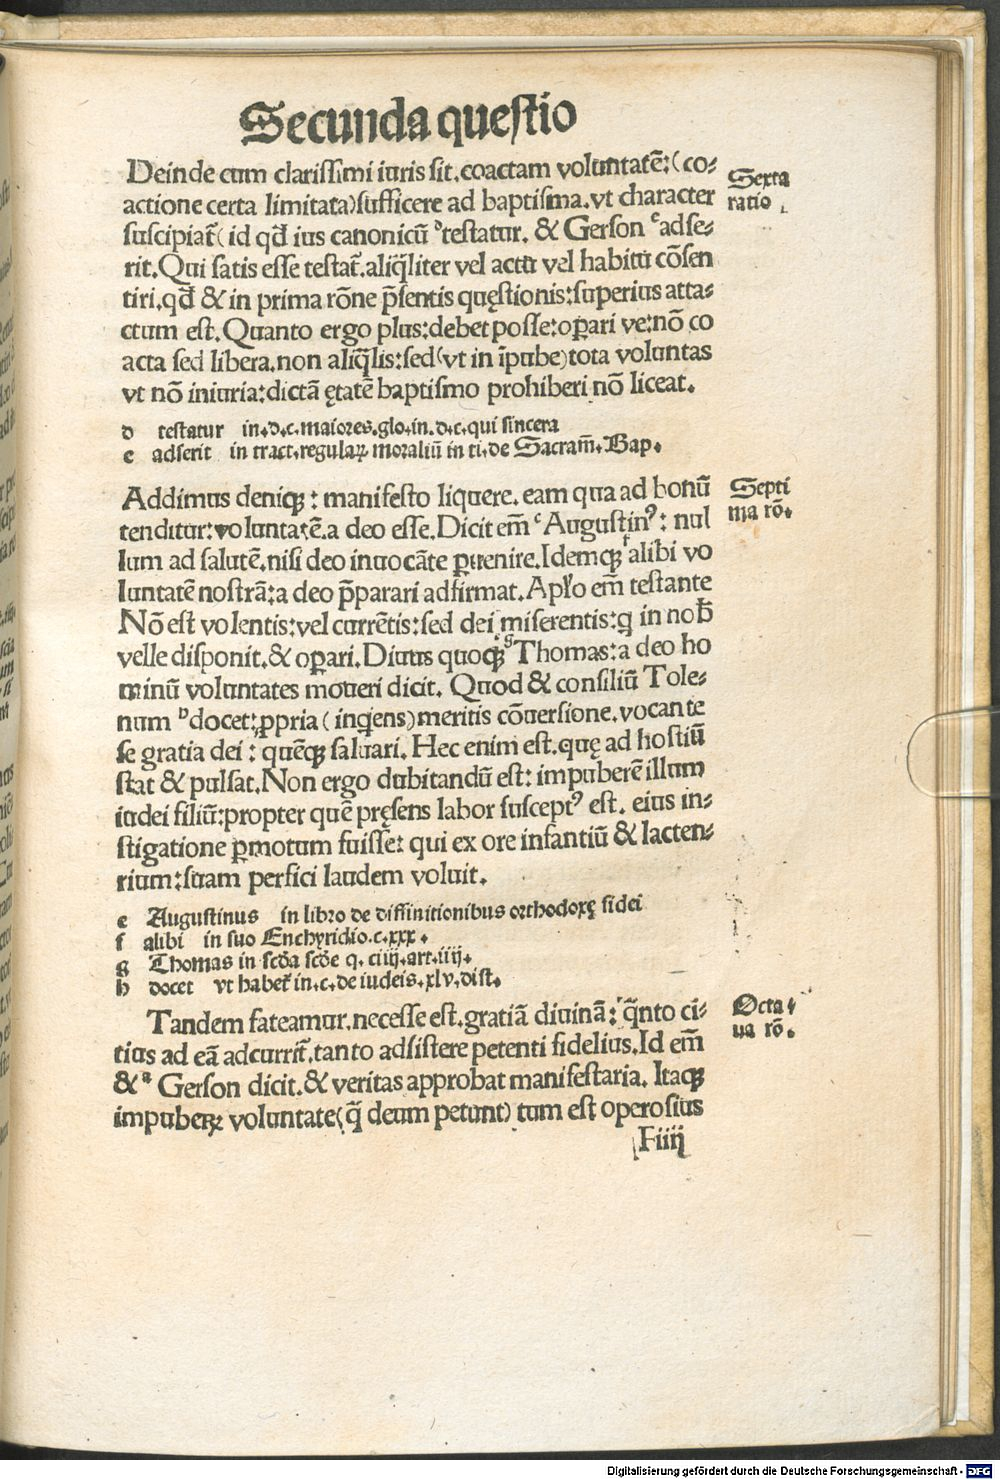 Secunda questio
Deinde cum clarissimi iuris sit.coactam voluntatē:(co-
actione certa limitata)sufficere ad baptisma.vt character
suscipiat(id qđ ius canonicū ᵈtestatur. & Gerson ᵉadse-
rit.Qui satis esse testat.aliq̄liter vel actu vel habitu cōsen
tiri.qđ & in prima rōne p̄sentis quęstionis:superius atta-
ctum est.Quanto ergo plus:debet posse:oꝑari ve:nō co
acta sed libera.non aliq̄lis:sed(vt in īpube)tota voluntas
vt nō iniuria:dictā ętatē baptismo prohiberi nō liceat.
Sexta
ratio
d testatur in.d.c.maiores.glo.in.d.c.qui sincera
e adserit in tract.regulaꝝ moraliū in ti.de Sacram̄.Bap.
Addimus deniqꝫ : manifesto liquere.eam qua ad bonū
tenditur:voluntatē.a deo esse.Dicit em̄ ᵉAugustinꝰ: nul
lum ad salutē.nisi deo inuocāte ꝑuenire.Idemqꝫ ᶠalibi vo
luntatē nostrā:a deo p̄parari adfirmat.Apło em̄ testante
Nō est volentis:vel currētis:sed dei miserentis:q in nob̄
velle disponit.& oꝑari.Diuus quoqꝫ ᵍThomas:a deo ho
minū voluntates moueri dicit. Quod & consiliū Tole-
num ʰdocet:ꝓpria(inqens)meritis cōuersione.vocante
se gratia dei : quēqꝫ saluari. Hec enim est.quę ad hostiū
stat & pulsat.Non ergo dubitandū est: impuberē illum
iudei filiū:propter quē pręsens labor susceptꝰ est. eius in-
stigatione ꝑmotum fuisse: qui ex ore infantiū & lacten-
rium:suam perfici laudem voluit.
Septi
ma rō.
e Augustinus in libro de diffinitionibus orthodoxę fidei
f alibi in suo Enchyridio.c.xxx.
g Thomas in scđa scđe q. ciiij.art.iiij.
h docet vt habet in.c.de iudeis.xlv.dist.
Tandem fateamur.necesse est.gratiā diuinā: q̄nto ci-
tius ad eā adcurrit.tanto adsistere petenti fidelius.Id em̄
&ᵃ Gerson dicit.& veritas approbat manifestaria. Itaqꝫ
impubeꝝ voluntate(q̄ deum petunt) tum est operosius
Octa-
ua rō.
Fiiij
Digitalisierung gefördert durch die Deutsche Forschungsgemeinschaft - DFG